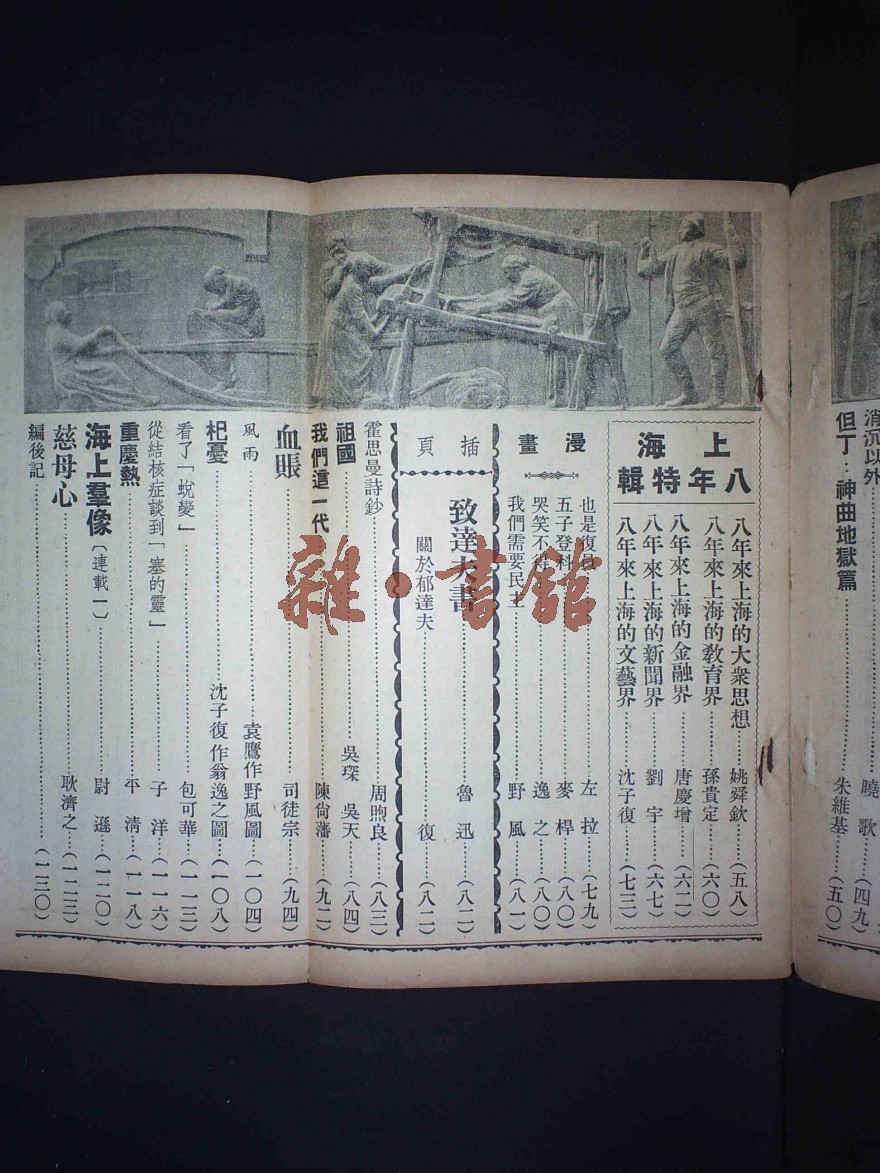 消沉以外……曉歌……(四九)
但丁：神曲地獄篇……朱維基……(五〇)
上海
八年特輯
八年來上海的大衆思想……姚舜欽……(五八)
八年來上海的教育界……孫貴定……(六〇)
八年來上海的金融界……唐慶增……(六二)
八年來上海的新聞界……劉宇……(六七)
八年來上海的文藝界……沈子復……(七三)
漫畫
也是復……左拉……(七九)
五子登科……麥桿……(八〇)
哭笑不得……逸之……(八〇)
我們需要民主……野風……(八一)
插頁
致達夫書……魯迅……(八二)
關於郁達夫……復……(八二)
霍思曼詩鈔……周煦良……(八三)
祖國……吳琛 吳天……(八四)
我們這一代……陳尙藩……(九二)
血賬……司徒宗……(九四)
風雨……袁鷹作野風圖……(一〇四)
杞憂……沈子復作翁逸之圖……(一〇八)
看了「蛻變」……包可華……(一一三)
從結核症談到「塞的靈」……子洋……(一一六)
重慶熱……平清……(一一八)
海上羣像(連載一)……尉遜……(一二〇)
慈母心……耿濟之……(一二三)
編後記……(一三〇)
雜·書館